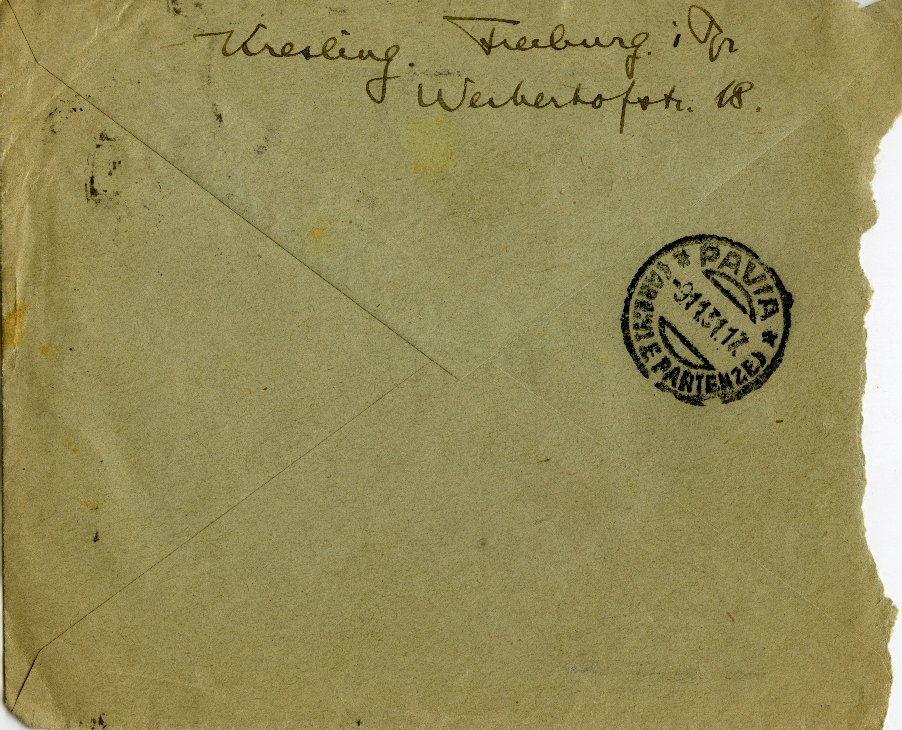 Kresling. Freiburg. i Br
Weiherhofstr. 18.
* PAVIA *
(ARRIVI E PARTENZE)
-9.11.31.17